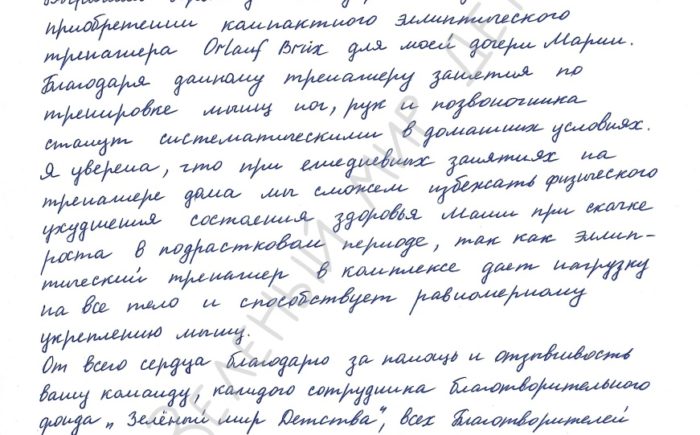 приобретении компактного эллиптического
тренажера Orlauf Brix для моей дочери Марии.
Благодаря данному тренажеру занятия по
тренировке мышц ног, рук и позвоночника
станут систематическими в домашних условиях.
Я уверена, что при ежедневных занятиях на
тренажере дома мы сможем избежать физического
ухудшения состояния здоровья Маши при скачке
роста в подростковом периоде, так как эллип-
тический тренажер в комплексе дает нагрузку
на все тело и способствует равномерному
укреплению мышц.
От всего сердца благодарю за помощь и отзывчивость
вашу команду, каждого сотрудника благотворительного
фонда „Зелёный мир Детства", всех Благотворителей
ЗЕЛЕНЫЙ МИР ДЕТ